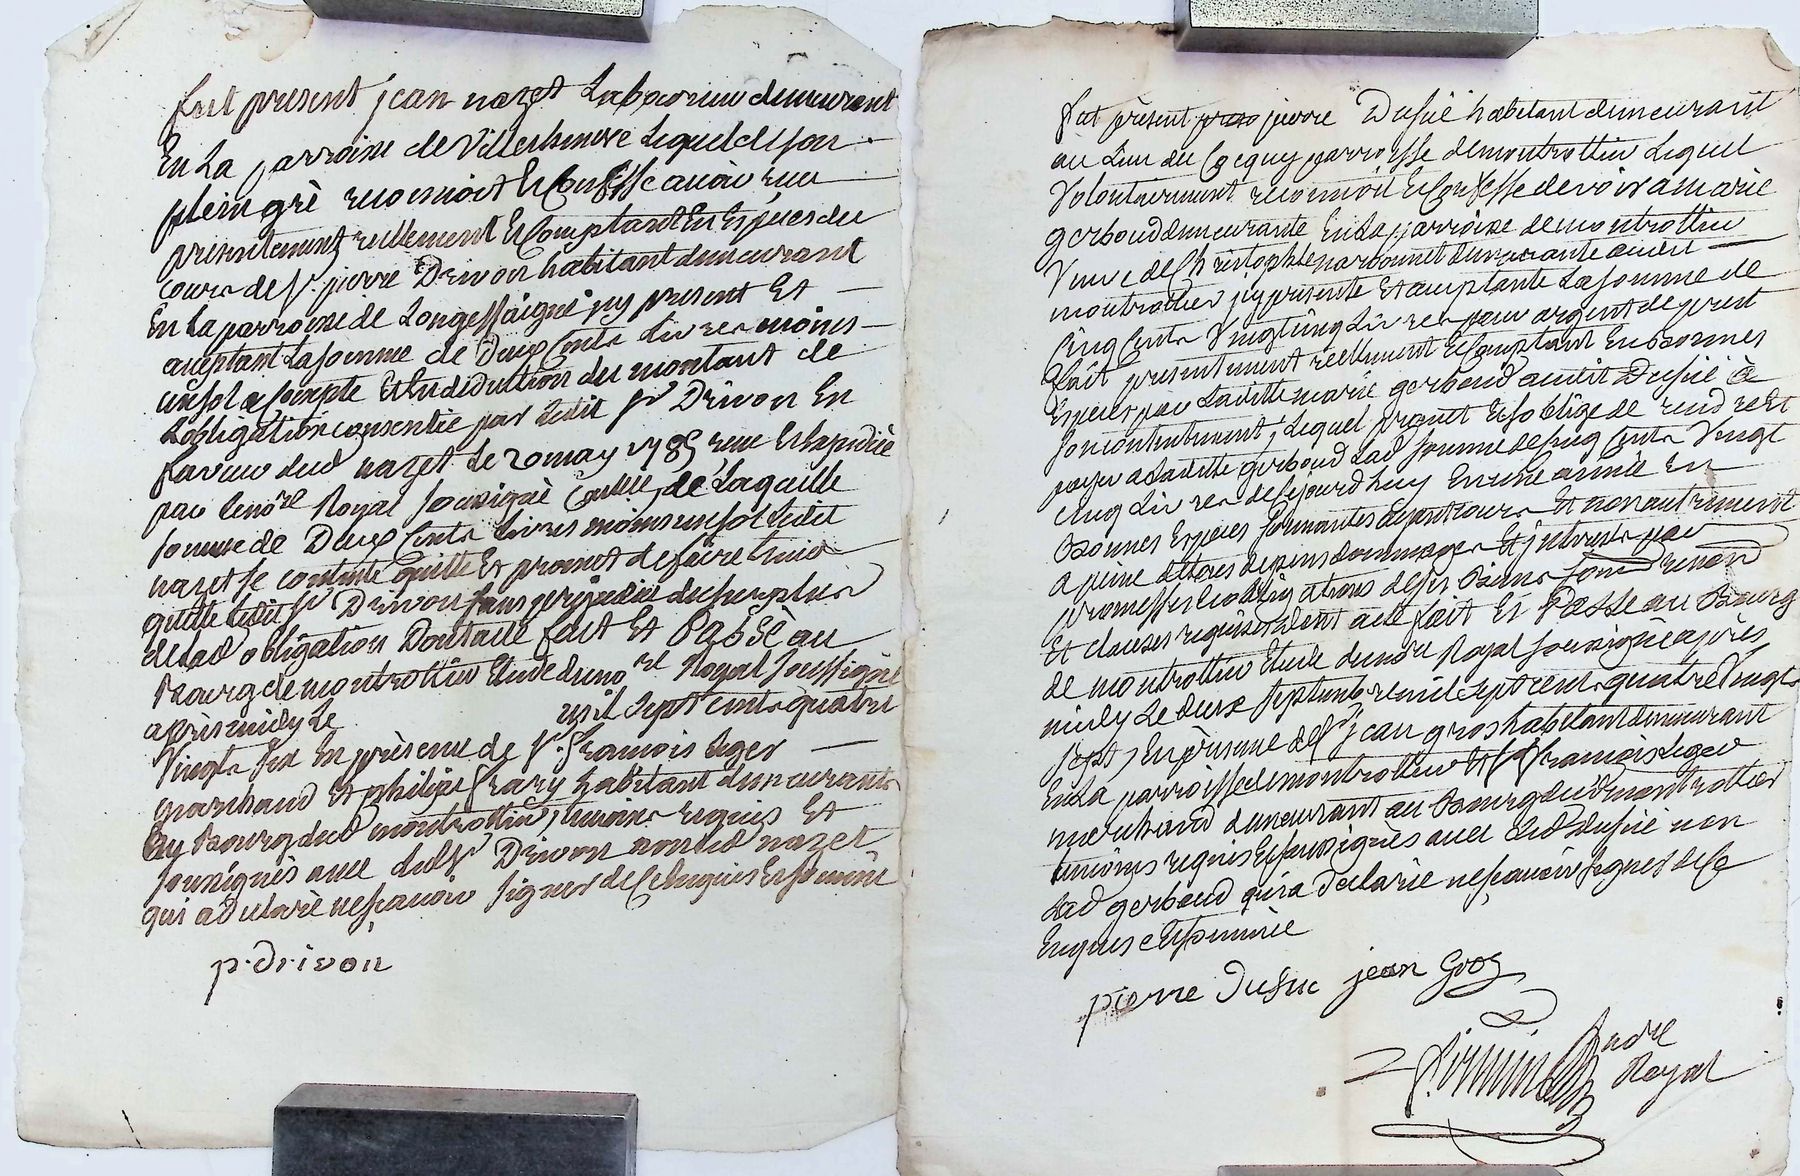 fut present jean nazet Laboureur demeurant
En La parroisse de Villechenève Lequel de son
plein gré reconnoit et Confesse avoir reçu
presentement reellement et Comptant En Especes du
cours de sr. pierre Drivon habitant demeurant
En La parroisse de Longessaigne icy present et
acceptant La somme de Deux Cents Livres moins
un sol a Compte et En deduction du montant de
Lobligation consentie par Ledit sr Drivon En
faveur dud nazet Le 20 may 1785 reçue et Expediée
par le no.re Royal soussigné de Laquelle
somme de Deux Cents Livres moins un sol Ledit
nazet se contente quitte et promet de faire tenir
quitte Ledit sr Drivon sans prejudice du surplus
de lad obligation Dont acte fait et Passé au
Bourg de montrottier Etude du no.re Royal soussigné
après midy Le mil sept cents quatre
Vingts six En présence de sr. françois Leger
marchand et philipe habitant demeurants
au Bourg dud montrottier, temoins requis et
soussignés avec led sr Drivon non led nazet
qui a declaré ne sçavoir signer de ce Enquis et sommé
p. drivon
fut présent pierre Dufué habitant demeurant
au Lieu du parroisse de montrottier Lequel
Volontairement reconnoit et Confesse devoir a marie
gerboud demeurante En La parroisse de montrottier
Veuve de Christophle demeurante audit
montrottier icy presente et acceptante La somme de
Cinq Cents Vingt Cinq Livres pour argent de prest
fait presentement reellement et Comptant En bonnes
Especes par Laditte marie gerboud audit Dufué à
son contentement, Lequel promet et soblige de rendre et
payer a Laditte gerboud Lad somme de Cinq Cents Vingt
Cinq Livres de ce jourdhuy En une année En
Bonnes Especes sonnantes ayant cours et non autrement
a peine de tous depens dommages et interests par
promesses et obligations de ses Biens
Et clauses requises Dont acte fait et Passé au Bourg
de montrottier Etude du no.re Royal soussigné après
midy Le deux septembre mil sept cents quatre Vingts
sept, En présence de sr jean gros habitant demeurant
En La parroisse de montrottier et sr françois Leger
marchand demeurant au Bourg dud montrottier
temoins requis et soussignés avec led Dufué non
Lad gerboud qui a declarée ne sçavoir signer de ce
Enquise et sommée
pierre dufue jean Gros
André
Royal